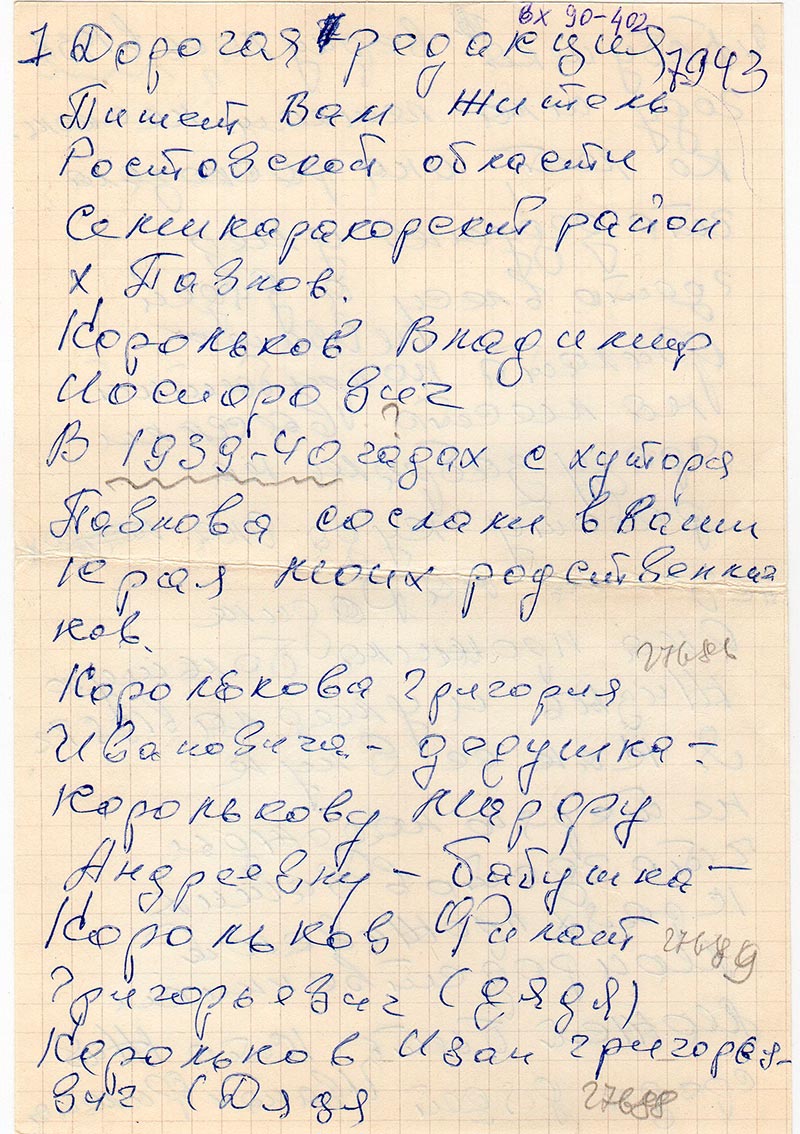 вх 90-402
1 Дорогая редакция 7943
Пишет Вам житель
Ростовской области
Семикаракорский район
х Павлов.
Корольков Владимир
Иосиорович
?
В 1939-40 годах с хутора
Павлова сослали в Ваши
края моих родственни
ков.
27686
Королькова Григория
Ивановича - дедушка -
Королькову Марфу
Андреевну - бабушка -
Корольков Филат 27689
Григорьевич (дядя)
Корольков Иван Григорье-
вич (Дядя 27688